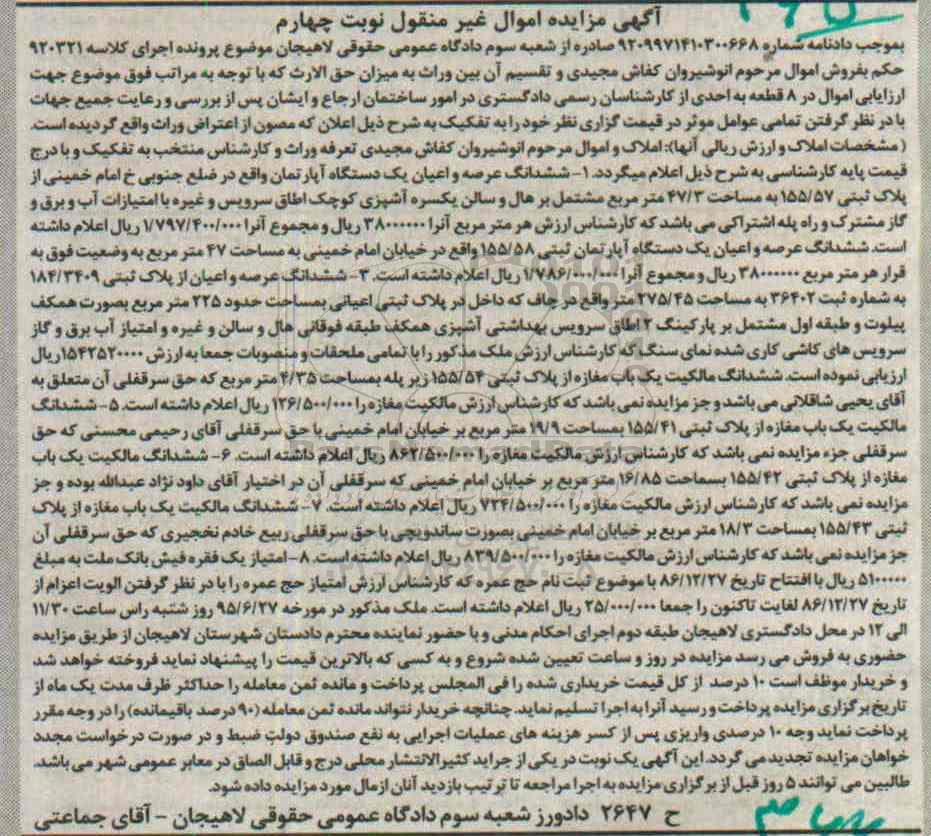 آگهی مزایده اموال غیر منقول نوبت چهارم
بموجب دادنامه شماره ۹۲۰۹۹۷۱۴۱۰۳۰۰۶۶۸ صادره از شعبه سوم دادگاه عمومی حقوقی لاهیجان موضوع پرونده اجرای کلاسه ۹۲۰۳۲۱
حکم بفروش اموال مرحوم انوشیروان کفاش مجیدی و تقسیم آن بین وراث به میزان حق الارث که با توجه به مراتب فوق موضوع جهت
ارزایابی اموال در ۸ قطعه به احدی از کارشناسان رسمی دادگستری در امور ساختمان ارجاع و ایشان پس از بررسی و رعایت جمیع جهات
با در نظر گرفتن تمامی عوامل موثر در قیمت گزاری نظر خود را به تفکیک به شرح ذیل اعلان که مصون از اعتراض وراث واقع گردیده است.
( مشخصات املاک و ارزش ریالی آنها): املاک و اموال مرحوم انوشیروان کفاش مجیدی تعرفه وراث و کارشناس منتخب به تفکیک و با درج
قیمت پایه کارشناسی به شرح ذیل اعلام میگردد. ۱- ششدانگ عرصه و اعیان یک دستگاه آپارتمان واقع در ضلع جنوبی خ امام خمینی از
پلاک ثبتی ۱۵۵/۵۷ به مساحت ۴۷/۳ متر مربع مشتمل بر هال و سالن یکسره آشپزی کوچک اطاق سرویس و غیره با امتیازات آب و برق و
گاز مشترک و راه پله اشتراکی می باشد که کارشناس ارزش هر متر مربع آنرا ۳۸۰۰۰۰۰۰ ریال و مجموع آنرا ۱/۷۹۷/۴۰۰/۰۰۰ ریال اعلام داشته
است. ششدانگ عرصه و اعیان یک دستگاه آپارتمان ثبتی ۱۵۵/۵۸ واقع در خیابان امام خمینی به مساحت ۴۷ متر مربع به وضعیت فوق به
قرار هر متر مربع ۳۸۰۰۰۰۰۰ ریال و مجموع آنرا ۱/۷۸۶/۰۰۰/۰۰۰ ریال اعلام داشته است. ۳- ششدانگ عرصه و اعیان از پلاک ثبتی ۱۸۴/۳۴۰۹
به شماره ثبت ۳۶۴۰۲ به مساحت ۲۷۵/۴۵ متر واقع در جاف که داخل در پلاک ثبتی اعیانی بمساحت حدود ۲۲۵ متر مربع بصورت همکف
پیلوت و طبقه اول مشتمل بر پارکینگ ۲ اطاق سرویس بهداشتی آشپزی همکف طبقه فوقانی هال و سالن و غیره و امتیاز آب برق و گاز
سرویس های کاشی کاری شده نمای سنگ که کارشناس ارزش ملک مذکور را با تمامی ملحقات و منصوبات جمعا به ارزش ۱۵۴۲۵۲۰۰۰۰ ریال
ارزیابی نموده است. ششدانگ مالکیت یک باب مغازه از پلاک ثبتی ۱۵۵/۵۴ زیر پله بمساحت ۴/۳۵ متر مربع که حق سرقفلی آن متعلق به
آقای یحیی شاقلانی می باشد و جز مزایده نمی باشد که کارشناس ارزش مالکیت مغازه را ۱۲۶/۵۰۰/۰۰۰ ریال اعلام داشته است. ۵- ششدانگ
مالکیت یک باب مغازه از پلاک ثبتی ۱۵۵/۴۱ بمساحت ۱۹/۹ متر مربع بر خیابان امام خمینی با حق سرقفلی آقای رحیمی محسنی که حق
سرقفلی جزء مزایده نمی باشد که کارشناس ارزش مالکیت مغازه را ۸۶۲/۵۰۰/۰۰۰ ریال اعلام داشته است. ۶- ششدانگ مالکیت یک باب
مغازه از پلاک ثبتی ۱۵۵/۴۲ بسماحت ۱۶/۸۵ متر مربع بر خیابان امام خمینی که سرقفلی آن در اختیار آقای داود نژاد عبدالله بوده و جز
مزایده نمی باشد که کارشناس ارزش مالکیت مغازه را ۷۲۴/۵۰۰/۰۰۰ ریال اعلام داشته است. ۷- ششدانگ مالکیت یک باب مغازه از پلاک
ثبتی ۱۵۵/۴۳ بمساحت ۱۸/۳ متر مربع بر خیابان امام خمینی بصورت ساندویچی با حق سرقفلی ربیع خادم نخجیری که حق سرقفلی آن
جز مزایده نمی باشد که کارشناس ارزش مالکیت مغازه را ۸۳۹/۵۰۰/۰۰۰ ریال اعلام داشته است. ۸- امتیاز یک فقره فیش بانک ملت به مبلغ
۵۱۰۰۰۰۰ ریال با افتتاح تاریخ ۸۶/۱۲/۲۷ با موضوع ثبت نام حج عمره که کارشناس ارزش امتیاز حج عمره را با در نظر گرفتن الویت اعزام از
تاریخ ۸۶/۱۲/۲۷ لغایت تاکنون را جمعا ۲۵/۰۰۰/۰۰۰ ریال اعلام داشته است. ملک مذکور در مورخه ۹۵/۶/۲۷ روز شنبه راس ساعت ۱۱/۳۰
الی ۱۲ در محل دادگستری لاهیجان طبقه دوم اجرای احکام مدنی و با حضور نماینده محترم دادستان شهرستان لاهیجان از طریق مزایده
حضوری به فروش می رسد مزایده در روز و ساعت تعیین شده شروع و به کسی که بالاترین قیمت را پیشنهاد نماید فروخته خواهد شد
و خریدار موظف است ۱۰ درصد از کل قیمت خریداری شده را فی المجلس پرداخت و مانده ثمن معامله را حداکثر ظرف مدت یک ماه از
تاریخ برگزاری مزایده پرداخت و رسید آنرا به اجرا تسلیم نماید. چنانچه خریدار نتواند مانده ثمن معامله (۹۰ درصد باقیمانده) را در وجه مقرر
پرداخت نماید وجه ۱۰ درصدی واریزی پس از کسر هزینه های عملیات اجرایی به نفع صندوق دولت ضبط و در صورت درخواست مجدد
خواهان مزایده تجدید می گردد. این آگهی یک نوبت در یکی از جراید کثیرالانتشار محلی درج و قابل الصاق در معابر عمومی شهر می باشد.
طالبین می توانند ۵ روز قبل از برگزاری مزایده به اجرا مراجعه تا ترتیب بازدید آنان از مال مورد مزایده داده شود.
ح ۲۶۴۷ دادورز شعبه سوم دادگاه عمومی حقوقی لاهیجان - آقای جماعتی